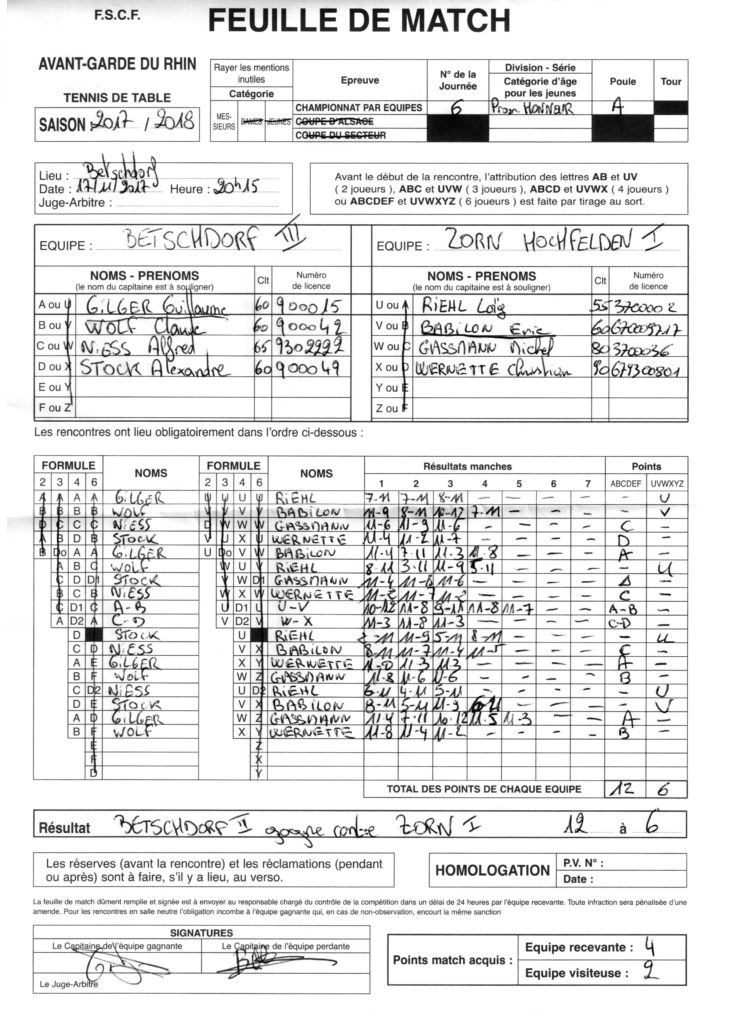 F.S.C.F.
FEUILLE DE MATCH
AVANT-GARDE DU RHIN
TENNIS DE TABLE
SAISON 2017 / 2018
Rayer les mentions inutiles
Catégorie
MES-SIEURS DAMES JEUNES
Epreuve
CHAMPIONNAT PAR EQUIPES
COUPE D'ALSACE
COUPE DU SECTEUR
N° de la Journée
6
Division - Série
Catégorie d'âge pour les jeunes
HONNEUR
Poule
A
Tour
Lieu : Betschdorf
Date : 17/11/2017 Heure : 20h15
Juge-Arbitre :
Avant le début de la rencontre, l'attribution des lettres AB et UV
( 2 joueurs ), ABC et UVW ( 3 joueurs ), ABCD et UVWX ( 4 joueurs )
ou ABCDEF et UVWXYZ ( 6 joueurs ) est faite par tirage au sort.
EQUIPE : BETSCHDORF III
EQUIPE : ZORN HOCHFELDEN I
NOMS - PRENOMS (le nom du capitaine est à souligner) Clt Numéro de licence
A ou U GILGER Guillaume 60 900015
B ou V WOLF Claude 60 900042
C ou W NIESS Alfred 65 9302992
D ou X STOCK Alexandre 60 900049
E ou Y
F ou Z
NOMS - PRENOMS (le nom du capitaine est à souligner) Clt Numéro de licence
U ou A RIEHL Loïg 55 3700002
V ou B BABILON Eric 60
W ou C GASSMANN Michel 80 3700036
X ou D WERNETTE Christian 90 674300801
Y ou E
Z ou F
Les rencontres ont lieu obligatoirement dans l'ordre ci-dessous :
FORMULE NOMS FORMULE NOMS Résultats manches Points
2 3 4 6 2 3 4 6 1 2 3 4 5 6 7 ABCDEF UVWXYZ
A A A A GILGER V U U RIEHL 7-11 7-11 8-11 - - - - - U
B B B WOLF V V BABILON 11-9 8-11 10-12 7-11 - - - - V
C C NIESS W W GASSMANN 11-6 11-9 11-6 - - - - C -
D B STOCK X U WERNETTE 11-4 11-2 11-7 - - - - D -
B Do A A GILGER U Do V V BABILON 11-4 7-11 11-3 11-8 - - - A -
A B C WOLF V U RIEHL 8-11 3-11 11-9 5-11 - - - - U
C D D1 STOCK W D1 GASSMANN 11-4 11-6 11-6 - - - - -
B C B NIESS W X W WERNETTE 11-7 - - - - C -
C D1 A A-B U D1 U U-V 10-12 11-8 9-11 11-8 11-7 - - A-B -
A D2 C C-D V D2 V W-X 11-3 11-8 11-3 - - - - C-D -
D STOCK U RIEHL 11-9 5-11 8-11 - - - - U
C D NIESS V X BABILON 8-11 11-7 11-4 11-5 - - - C -
A E GILGER X Y WERNETTE 11-0 11-3 11-3 - - - - A -
B F WOLF W Z GASSMANN 11-8 11-6 11-6 - - - - B -
C D2 NIESS U D2 RIEHL 6-11 4-11 5-11 - - - - - U
D E STOCK V X BABILON 8-11 5-11 11-9 - - - - V
A D GILGER W Z GASSMANN 11-4 7-11 10-12 11-5 11-3 - - A -
B F WOLF X Y WERNETTE 11-8 11-4 11-2 - - - - B -
E Z
F X
D Y
TOTAL DES POINTS DE CHAQUE EQUIPE 12 6
Résultat BETSCHDORF III gagne contre ZORN I 12 à 6
Les réserves (avant la rencontre) et les réclamations (pendant
ou après) sont à faire, s'il y a lieu, au verso.
HOMOLOGATION
P.V. N° :
Date :
La feuille de match dûment remplie et signée est à envoyer au responsable chargé du contrôle de la compétition dans un délai de 24 heures par l'équipe recevante. Toute infraction sera pénalisée d'une
amende. Pour les rencontres en salle neutre l'obligation incombe à l'équipe gagnante qui, en cas de non-observation, encourt la même sanction
SIGNATURES
Le Capitaine de l'équipe gagnante
Le Capitaine de l'équipe perdante
Le Juge-Arbitre
Points match acquis :
Equipe recevante : 4
Equipe visiteuse : 2